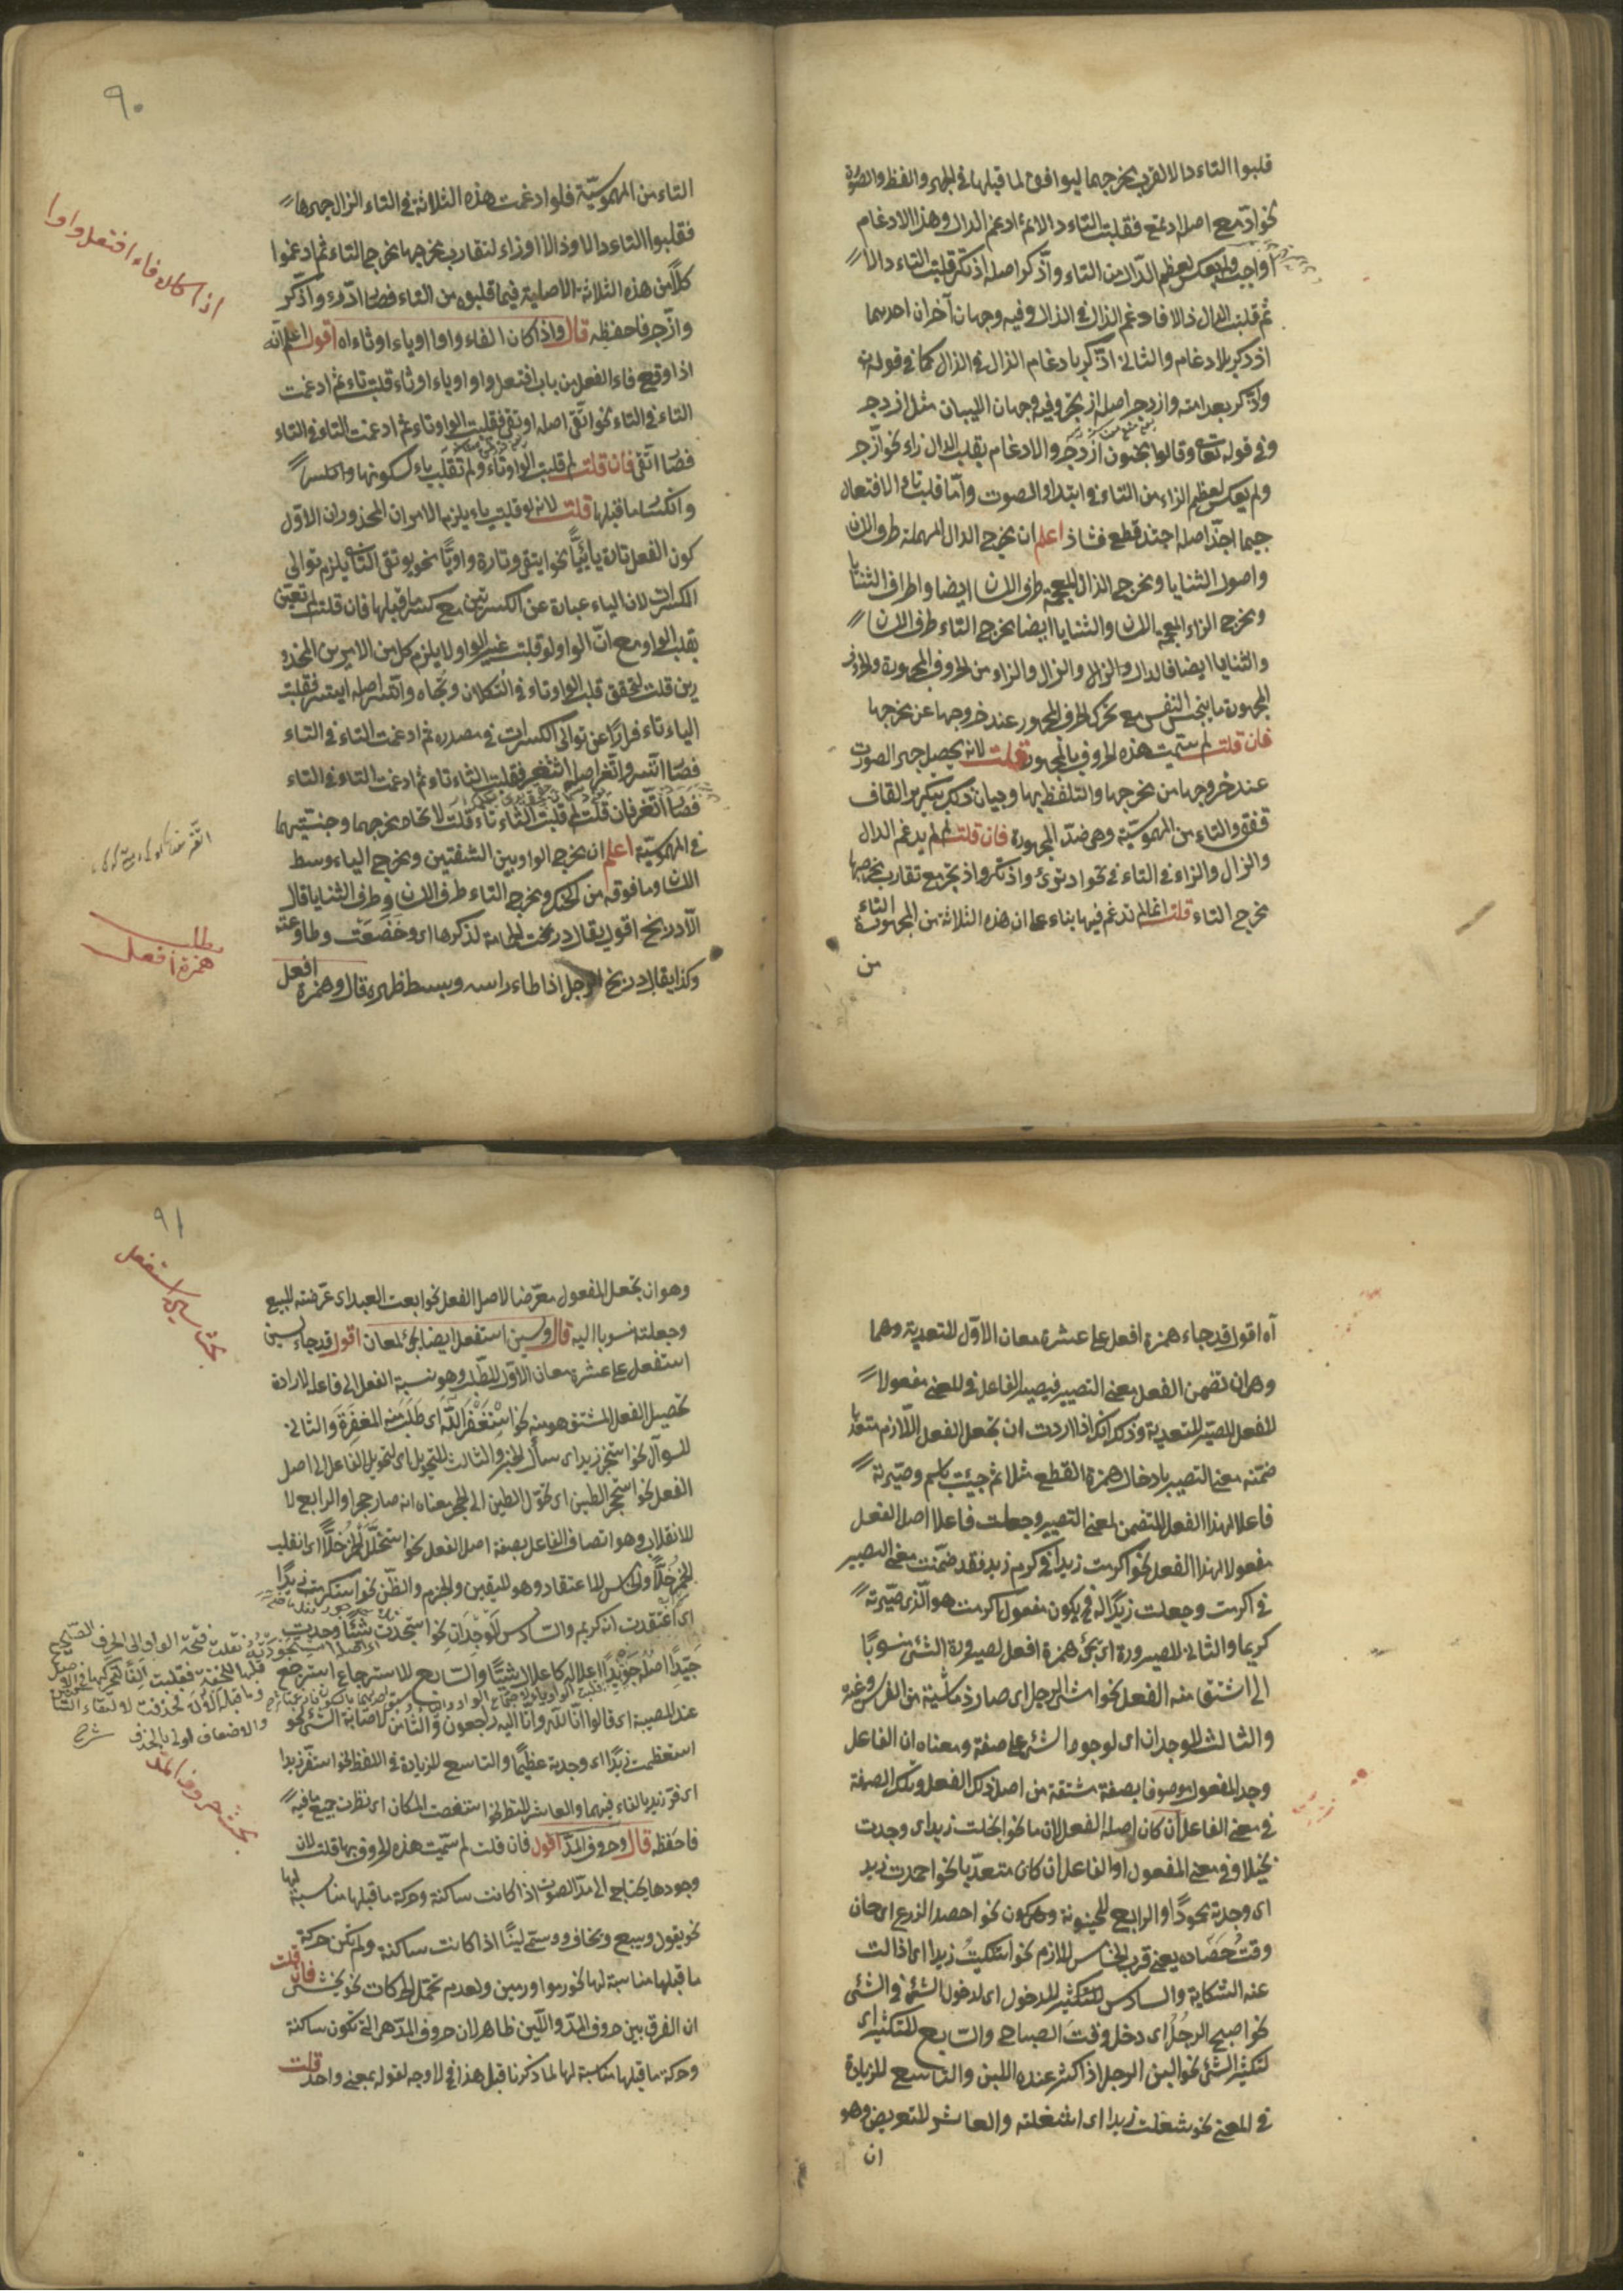 قلبوا التاء دالا لقرب مخرجهما ليوافق لما قبلها في الجهر والفظ والصورة
نحو ادّمع اصله ادتمع فقلبت التاء دالا ثم ادغم الدال وهذا الادغام
واجب ولم يعكس لعظم الدال من التاء واذّكر اصله اذتكر قلبت التاء دالا
ثم قلبت الدال ذالا فادغم الذال في الذال وفيه وجهان آخران احدهما
اذدكر بلا ادغام والثاني ادّكر بادغام الدال في الدال كما في قوله تع
وادّكر بعد امة وازدجر اصله ازتجر وفيه وجهان البيان مثل ازدجر
وفي قوله تعا وقالوا مجنون وازدجر والادغام بقلب الدال زاء نحو ازّجر
ولم يعكس لعظم الزاء من التاء في امتداد الصوت وامّا قلب تاء الافتعال
جيما اجدّ اصله اجتد قطع فشاذ اعلم ان مخرج الدال المهملة طرف اللسان
واصول الثنايا ومخرج الذال المعجمة طرف اللسان ايضا واطراف الثنايا
ومخرج الزاء المعجمة اللسان والثنايا ايضا مخرج التاء طرف اللسان
والثنايا ايضا فالدال والذال والزاء من الحروف المجهورة والحروف
المجهورة ما ينحبس النفس مع تحرك الحرف المجهور عند خروجها عن مخرجها
فان قلت لم سمّيت هذه الحروف بالمجهورة قلت لانه يحصل جهر الصوت
عند خروجها من مخرجها والتلفظ بها وبيان ذلك بتكرير القاف
ققق والتاء من المهموسة وهي ضدّ المجهورة فان قلت لم لم يدغم الدال
والذال والزاء في التاء في نحو ادترئ واذتكر وازتجر مع تقارب مخرجها
مخرج التاء قلت انما لم تدغم فيها بناء على ان هذه الثلاثة من المجهورة والتاء
من
٩٠
التاء من المهموسة فلو ادغمت هذه الثلاثة في التاء لزال جهرها
فقلبوا التاء دالا وذالا وزاء لتقارب مخرجها مخرج التاء ثم ادغموا
كلّا من هذه الثلاثة الاصلية فيما قلبوه من التاء فصار ادّرء واذّكر
وازّجر فاحفظه قال واذا كان الفاء واوا او ياء او ثاء اه اقول اعلم انّه
اذا وقع فاء الفعل من باب افتعل واوا او ياء او ثاء قلبت تاء ثم ادغمت
التاء في التاء نحو اتّقى اصله اوتقى فقلبت الواو تاء ثم ادغمت التاء في التاء
فصار اتّقى فان قلت لم قلبت الواو تاء ولم تقلب ياء لسكونها وانكسر
وانكسار ما قبلها قلت لانه لو قلبت ياء يلزم الامران المحذوران الاوّل
كون الفعل تارة يائيّا نحو ايتقى وتارة واويّا نحو يوتقى الثانى يلزم توالى
الكسرات لان الياء عبارة عن الكسرتين مع كسر ما قبلها فان قلت لم تعيّن
بقلب الواو مع انّ الواو لو قلبت غير الواو لا يلزم كل من الامرين المحذو
رين قلت لتحقق قلب الواو تاء في التكلان وتجاه واتّسر اصله ايتسر فقلبت
الياء تاء فرارا عن توالى الكسرات في مصدره ثم ادغمت التاء في التاء
فصار اتّسر واتّغر اصله اثتغر فقلبت الثاء تاء ثم ادغمت التاء في التاء
فصار اتّغر فان قلت لم قلبت الثاء تاء قلت لاتحاد مخرجهما وجنسيتهما
في المهموسيّة اعلم ان مخرج الواو بين الشفتين ومخرج الياء وسط
اللسان وما فوقه من الحنك ومخرج التاء طرف اللسان وطرف الثنايا قال
الّا دربخ اقول يقال دربخت الحمامة لذكرها اى وخضعت وطاوعته
وكذا يقال دربخ الرجل اذا طاء راسه وبسط ظهره قال وهمزة افعل
اذا كان فاء افتعل واوا
مطلب
همزة افعل
آه اقول قد جاء همزة افعل على عشرة معان الاوّل للتعدية وهما
وهو ان تضمن الفعل معنى التصيير فيصير الفاعل في المعنى مفعولا
للفعل المصيّر للتعدية وذلك انك اذا اردت ان تجعل الفعل اللازم متعديا
ضمّنه معنى التصيير بادخال همزة القطع مثلا ثم جيئت باسم وصيّرته
فاعلا لهذا الفعل المتضمن لمعنى التصيير وجعلت فاعلا اصل الفعل
مفعولا لهذا الفعل نحو اكرمت زيدا في كرم زيد فقد ضمّنت معنى التصيير
في اكرمت وجعلت زيدا له في يكون مفعول اكرمت هو الّذى صيّرته
كريما والثاني للصيرورة اى يجئ همزة افعل لصيرورة الشئ منسوبا
الى اشتق منه الفعل نحو امشى الرجل اى صار ذا ماشية من الفرس وغيره
والثالث للوجدان اى لوجود الشئ على صفة ومعناه ان الفاعل
وجد المفعول موصوفا بصفة مشتقة من اصل ذلك الفعل وتلك الصفة
في معنى الفاعل ان كان اصله الفعل لازما نحو ابخلت زيدا اى وجدت
بخيلا وفي معنى المفعول او الفاعل ان كان متعدّيا نحو احمدت زيد
اى وجدته محمودا والرابع للحينونة وهى كون نحو احصد الزرع اى حان
وقت حَصَاده يعنى قرب الخامس للازم نحو اشكيت زيدا اى اذالت
عنه الشكاية والسادس للتكثير للدخول اى لدخول الشئ في الشئ
نحو اصبح الرجل اى دخل وقت الصباح والسابع للتكثير اى
لتكثير الشئ نحو البن الرجل اذ اكثر عنده اللبن والتاسع للزيادة
في المعنى نحو شغلت زيدا اى اشغلته والعاشر للتعريض وهو
ان
٩١
بحث سين استفعل
وهو ان تجعل المفعول معرّضا لاصل الفعل نحو ابعت العبد اى عرّضته للبيع
وجعلته منسوبا اليه قال وسين استفعل ايضا يجئ لمعان اقول قد جاء سين
استفعل على عشرة معان الاوّل للطلب وهو نسبة الفعل الى فاعله لارادة
تحصيل الفعل المشتق هو منه نحو استغفر اللّه اى طلبت منه المغفرة والثاني
للسوآل نحو استخبر زيد اى سأل الخبر والثالث للتحويل اى لتحويل الفاعل الى اصل
الفعل نحو استحجر الطين اى تحوّل الطين الى الحجر معناه انه صار حجرا والرابع لا
للانقلاب وهو اتصاف الفاعل بصفة اصل الفعل نحو استخلّل الخمر خلّا اى انقلب
الخمر خلّا والخامس للاعتقاد وهو لليقين والجزم والظّن نحو استكرمت زيدا
اى اعتقدت انه كريم والسادس للوجدان نحو استجدت شيئا وجدت
جيّدا اصله جويدا اعلاله كاعلال شيئا والسابع للاسترجاع استرجع
عند المصيبة اى قالوا انّا للّه وانّا اليه راجعون والثامن لاصابة الشئ نحو
استعظمت زيدا اى وجدته عظيما والتاسع للزيادة في اللفظ نحو استقرّ زيدا
اى قرّ زيد بالقاف فيهما والعاشر للنظر نحو استفحصت المكان اى نظرت جميع ما فيه
فاحفظه قال وحروف المدّ اقول فان قلت لم سمّيت هذه الحروف بها قلت لان
وجودها يحتاج الى مدّ الصوت اذا كانت ساكنة وحركة ما قبلها مناسبة لها
نحو يقول ويبيع ويخاف وتسمّى لينا اذا كانت ساكنة ولم تكن حركة
ما قبلها مناسبة لها نحو رموا ورمين ولعدم تحمّل الحركات نحو يخشى فان قلت
ان الفرق بين حروف المدّ واللّين ظاهر لان حروف المدّ هى التى تكون ساكنة
وحركة ما قبلها مناسبة لها لما ذكرنا قبل هذا في لا وجه لقوله بمعنى واحد قلت
بحث حروف المد